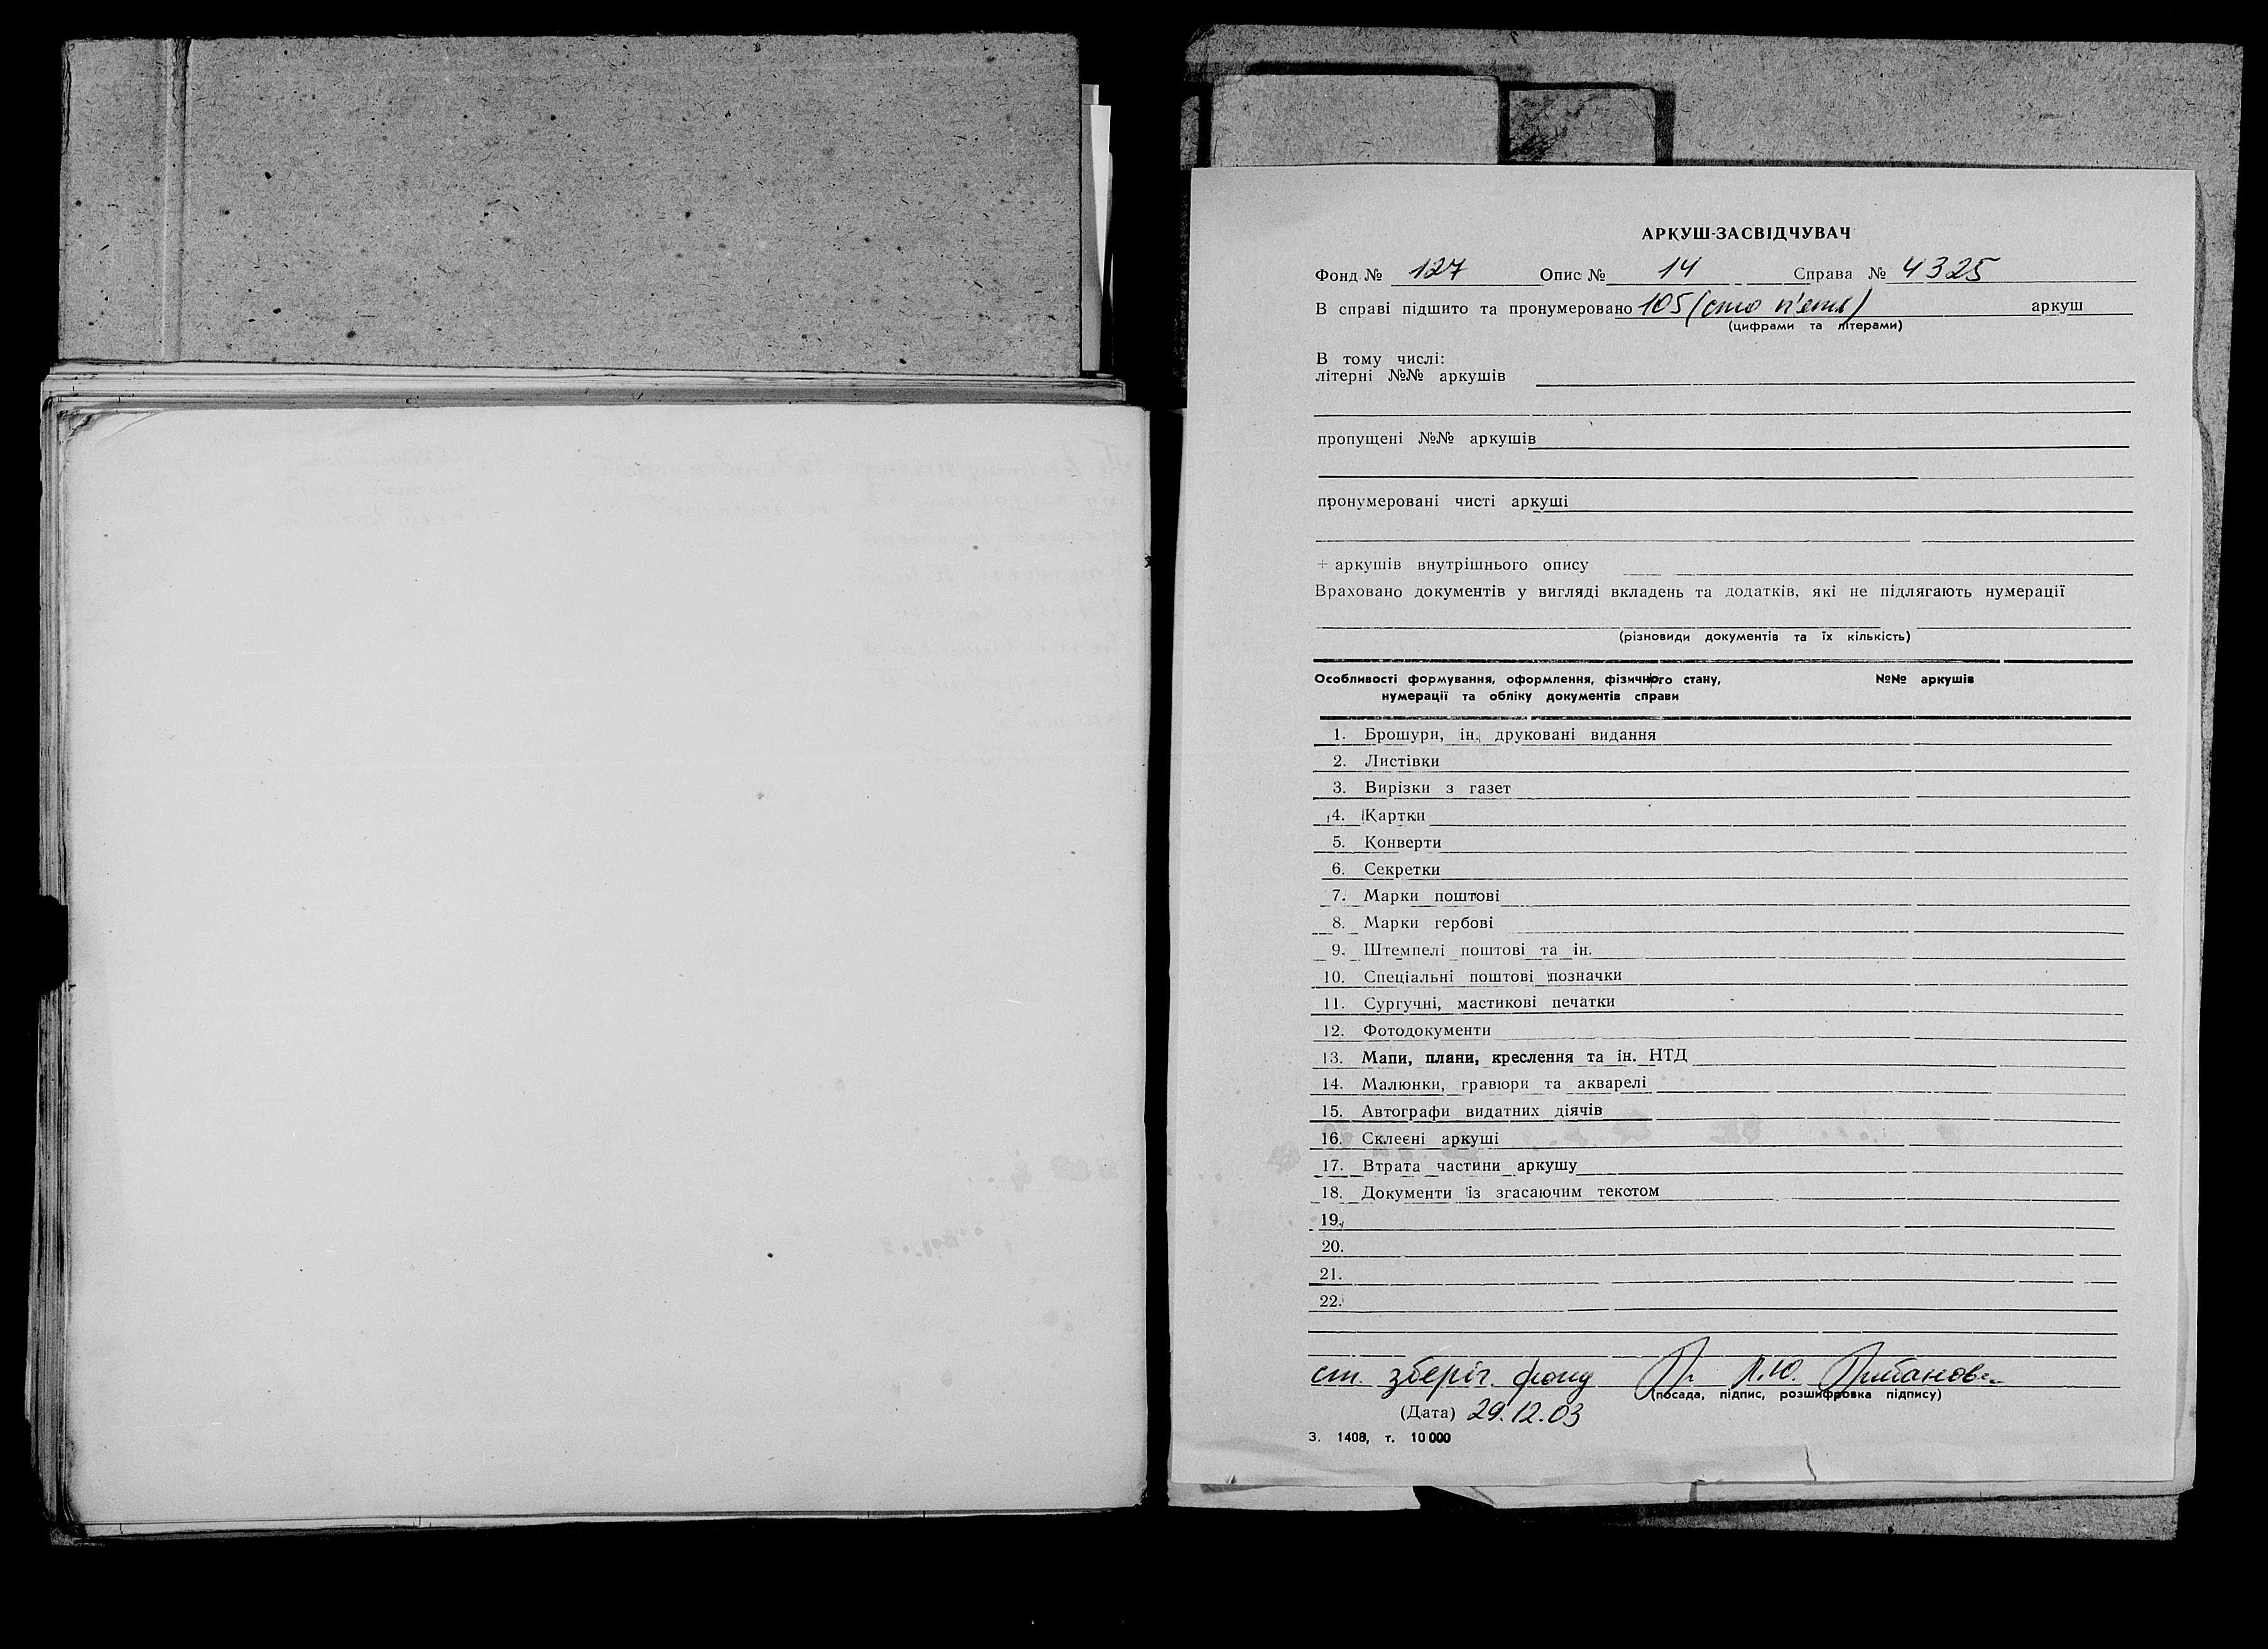 АРКУШ-ЗАСВІДЧУВАЧ
Фонд № 127 Опис № 14 Справа № 4325
В справі підшито та пронумеровано 105 (сто п'ять) аркуш
(цифрами та літерами)
В тому числі:
літерні №№ аркушів
пропущені №№ аркушів
пронумеровані чисті аркуші
+ аркушів внутрішнього опису
Враховано документів у вигляді вкладень та додатків, які не підлягають нумерації
(різновиди документів та їх кількість)
Особливості формування, оформлення, фізичного стану, №№ аркушів
нумерації та обліку документів справи
1. Брошури, ін. друковані видання
2. Листівки
3. Вирізки з газет
4. Картки
5. Конверти
6. Секретки
7. Марки поштові
8. Марки гербові
9. Штемпелі поштові та ін.
10. Спеціальні поштові позначки
11. Сургучні, мастикові печатки
12. Фотодокументи
13. Мапи, плани, креслення та ін. НТД
14. Малюнки, гравюри та акварелі
15. Автографи видатних діячів
16. Склеєні аркуші
17. Втрата частини аркушу
18. Документи із згасаючим текстом
19.
20.
21.
22.
ст. зберіг. фонд Л.Ю.
(посада, підпис, розшифровка підпису)
(Дата) 29.12.03
З. 1408, т. 10 000